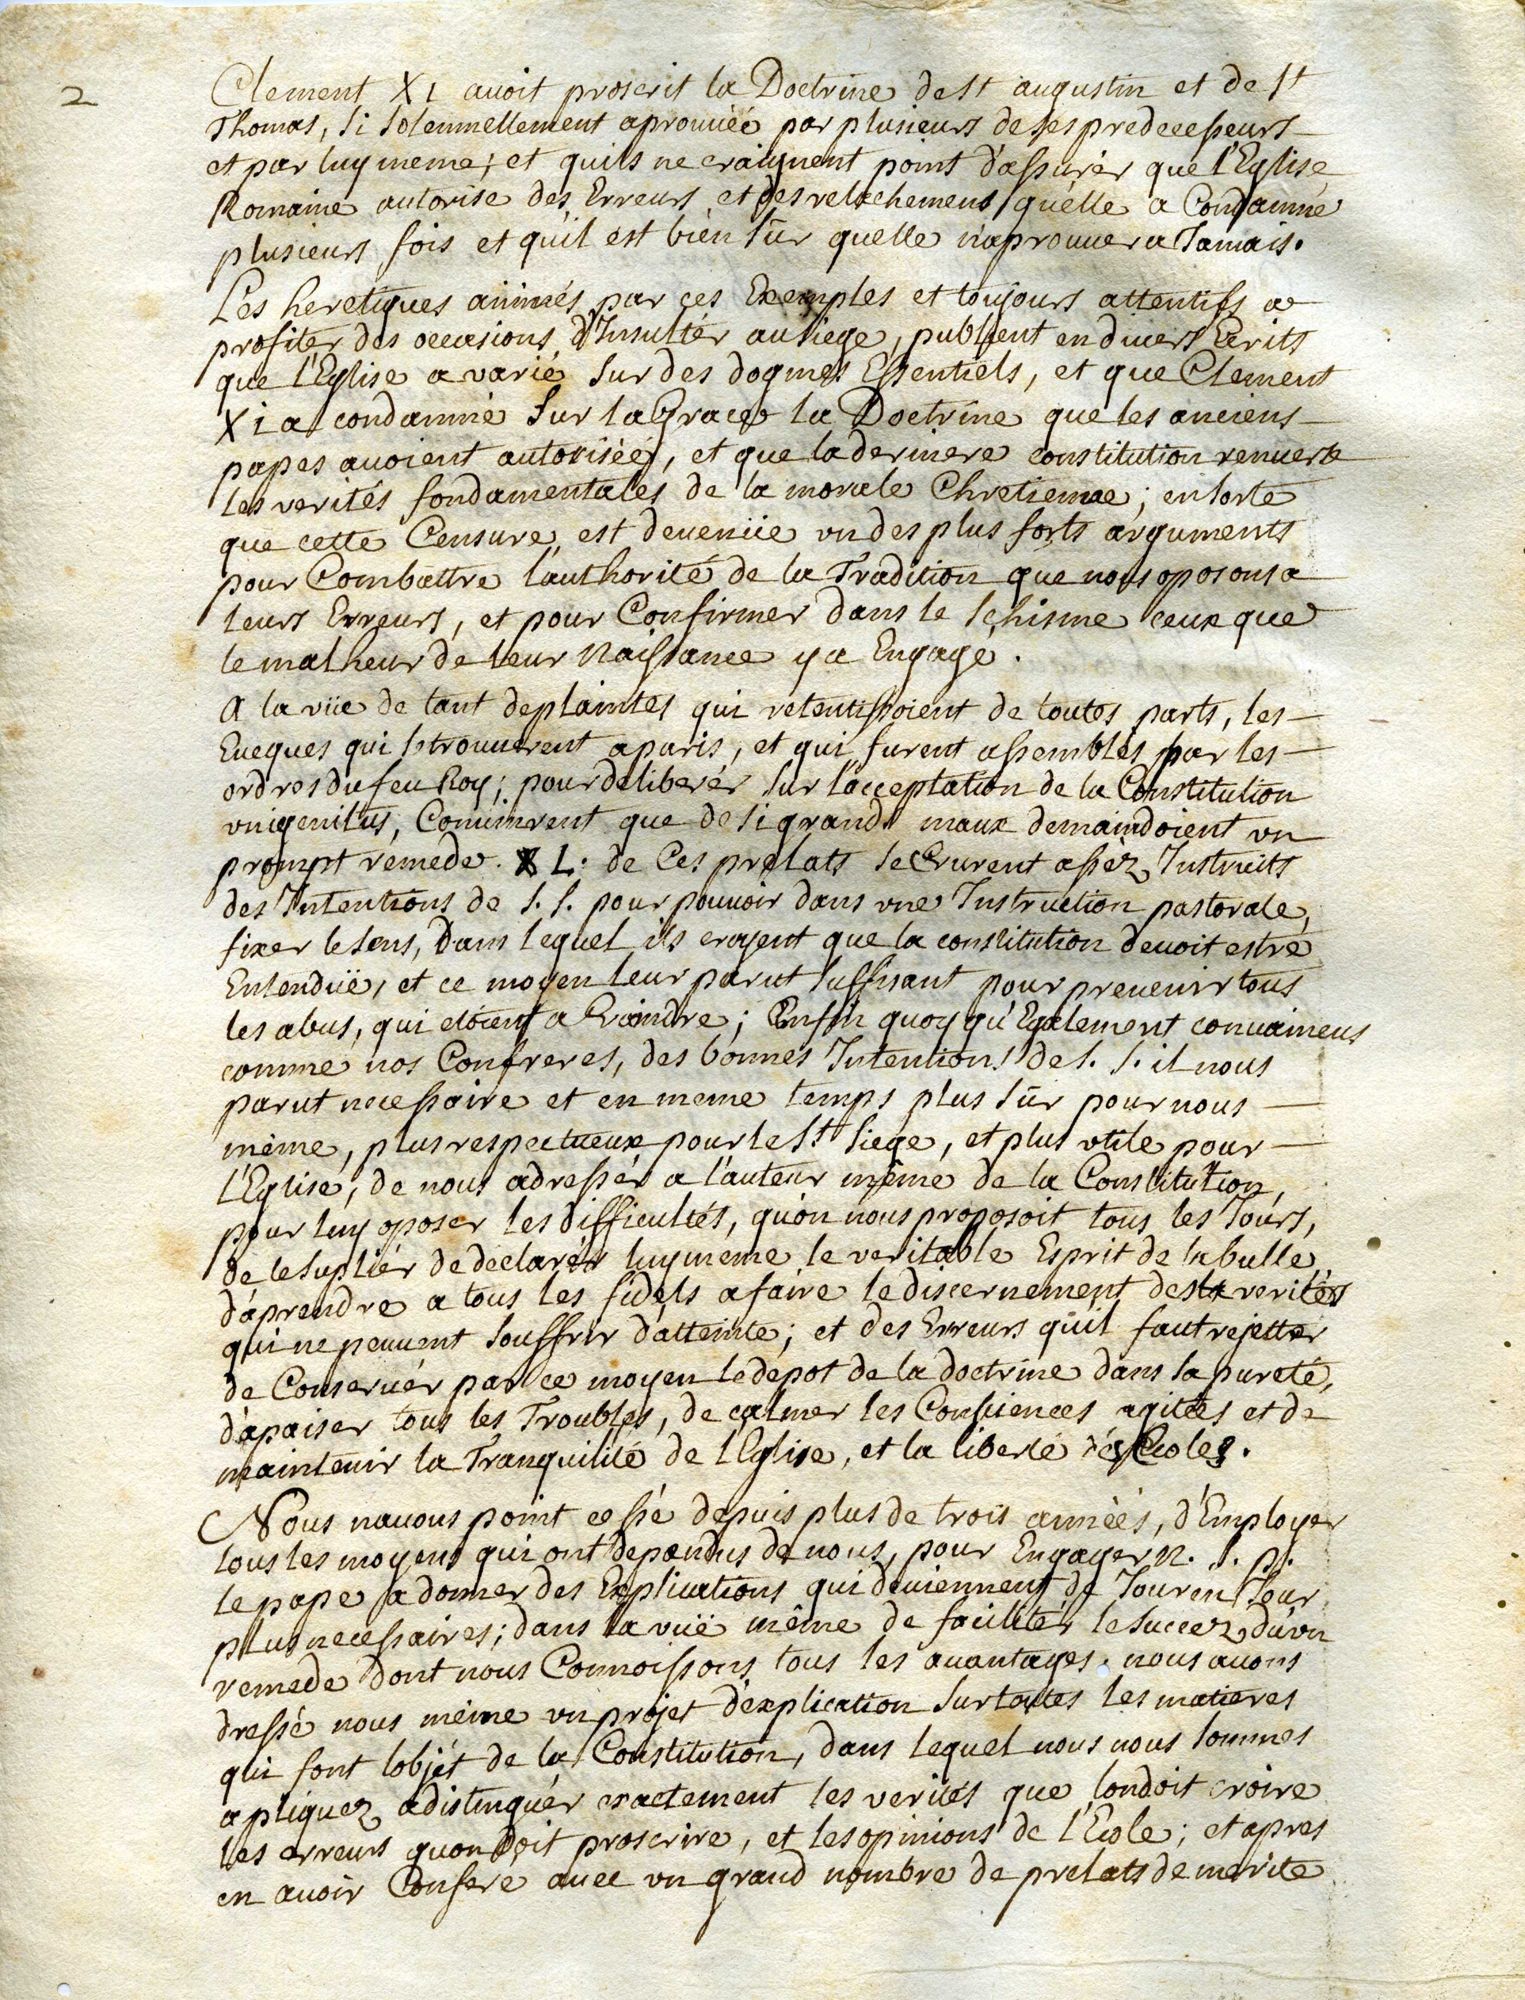 2
Clement XI avoit proscrit la Doctrine de St augustin et de St
Thomas, si solemnellement aprouvée par plusieurs de ses predecesseurs
et par luy meme; et quils ne craignent point d'assurér que l'Eglise
Romaine autorise des Erreurs et des relachemens qu'elle a Condamné
plusieurs fois et qu'il est bien sûr quelle n'aprouuera Jamais.
Les heretiques animés par ces Exemples et toujours attentifs a
profiter des occasions d'Insultér au siege, publient en divers Ecrits
que l'Eglise a varié sur des dogmes Essentiels, et que Clement
XI a condamné sur la Grace la Doctrine que les anciens
papes auoient autorisée, et que la derniere constitution renuerse
les verités fondamentales de la morale Chretienne; ensorte
que cette Censure est deuenüe un des plus forts arguments
pour Combattre l'authorité de la Tradition que nous oposons a
leurs Erreurs, et pour Confirmer dans le schisme ceux que
le malheur de leur Naissance y a Engagé.
A la vüe de tant de plaintes qui retentissoient de toutes parts, les
Eueques qui se trouuerent a paris, et qui furent assemblés par les
ordres du feu Roy; pour deliberér sur l'acceptation de la Constitution
vnigenitus, Conuinrent que de si grands maux demandoient vn
prompt remede. XL. de Ces prelats se Crurent assez Instruits
des Intentions de S. S. pour pouuoir dans vne Instruction pastorale,
fixer le sens, Dans lequel ils croyent que la constitution deuoit estre
Entendüe, et ce moyen leur parut suffisant pour preuenir tous
les abus, qui etoient a Craindre; Enfin quoy qu'Egalement conuaincus
comme nos Confreres, des bonnes Intentions de S. S. il nous
parut necessaire et en meme temps plus sûr pour nous
même, plus respectueux pour le St Siege, et plus vtile pour
l'Eglise, de nous adressér a l'auteur même de la Constitution,
pour luy oposer les difficultés, qu'on nous proposoit tous les Jours,
de le suplier de declarér luy meme le veritable Esprit de la bulle,
d'aprendre a tous les fidels a faire le discernement des verités
qui ne peuuent souffrir d'atteinte; et des Erreurs qu'il faut rejetter
de Conseruér par ce moyen le depot de la doctrine dans sa pureté,
d'apaiser tous les Troubles, de calmer les Consciences agitées et de
maintenir la Tranquilité de l'Eglise, et la liberté des Ecoles.
Nous nauons point cessé depuis plus de trois années, d'Employer
tous les moyens qui ont dependus de nous, pour Engager N. S. p.
le pape a donner des Explications qui deuiennent de Jour en Jour
plus necessaires; dans la vuë même de facilitér le succez d'un
remede dont nous Connoissons tous les auantages. nous auons
dressé nous même vn projet d'explication sur toutes les matieres
qui font l'objét de la Constitution, dans lequel nous nous sommes
apliquez a distinguér exactement les verités que l'on doit croire
les erreurs quon doit proscrire, et les opinions de l'Ecole; et apres
en auoir Conferé auec vn grand nombre de prelats de merite